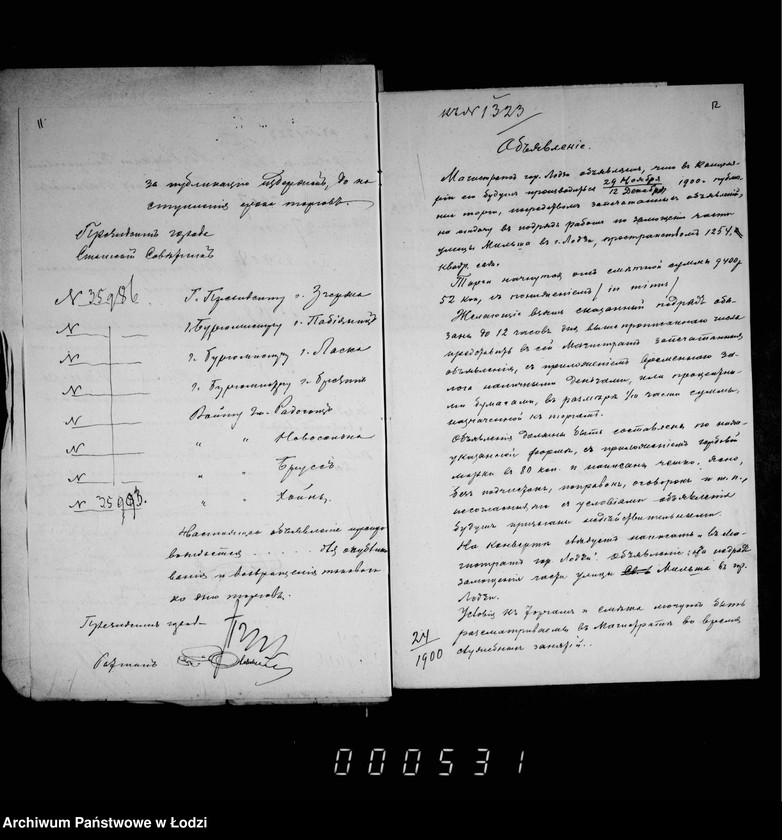 11
за публикацию издержки, до на
ступления срока торгов.
Президент города
Статский Советник
N 35986. Г. Президенту г. Згержа
N — г. Бургомистру г. Пабіяниц
N — г. Бургомистру г. Ласка
N — г. Бургомистру г.
N — Войту гм. Радогощ
N — " " Новосольна
N — " " Брусъ
N 35993. " " Хойны
Настоящее объявленіе
. . . . . для опубли
кованія и возвращенія такового
ко дню торгов.
Президентъ города
12
къ N 1323
Объявленіе.
Магистратъ гор. Лодзи объявляетъ, что въ Канцеля-
ріи его будутъ производиться 29 Ноября / 12 Декабря 1900 г. публич-
ные торги, посредствомъ запечатанныхъ объявленій,
на отдачу въ подрядъ работъ по замощенію части
улицы Мильша в г. Лодзи, пространствомъ 1254,
квадр. саж.
Торги начнутся отъ сметной суммы 9400 р
52 коп, съ пониженіемъ / in minus /
Желающіе взять сказанный подрядъ обя-
заны до 12 часовъ дня вышепрописаннаго числа
представить въ сей Магистратъ запечатанныя
объявленія, съ приложеніемъ временнаго за-
лога наличными деньгами, или процентны-
ми бумагами, въ размѣрѣ 1/10 части суммы,
назначенной къ торгамъ.
Объявленія должны быть составлены по ниже
указанной формѣ, съ приложеніемъ гербовой
марки въ 80 коп и написаны четко, ясно,
безъ подчистокъ, поправокъ, оговорокъ и т. п.,
несогласныя съ условіями объявленія
будутъ признаны недѣйствительными.
На конвертѣ слѣдуетъ написать „въ Ма-
гистратъ гор. Лодзи". Объявленіе: „на подрядъ
замощенія части улицы Мильша въ гор.
Лодзи.
Условія къ торгамъ и смета могутъ быть
разсматриваемы въ Магистратѣ во время
служебныхъ занятій.
24
1900
000531
Archiwum Państwowe w Łodzi